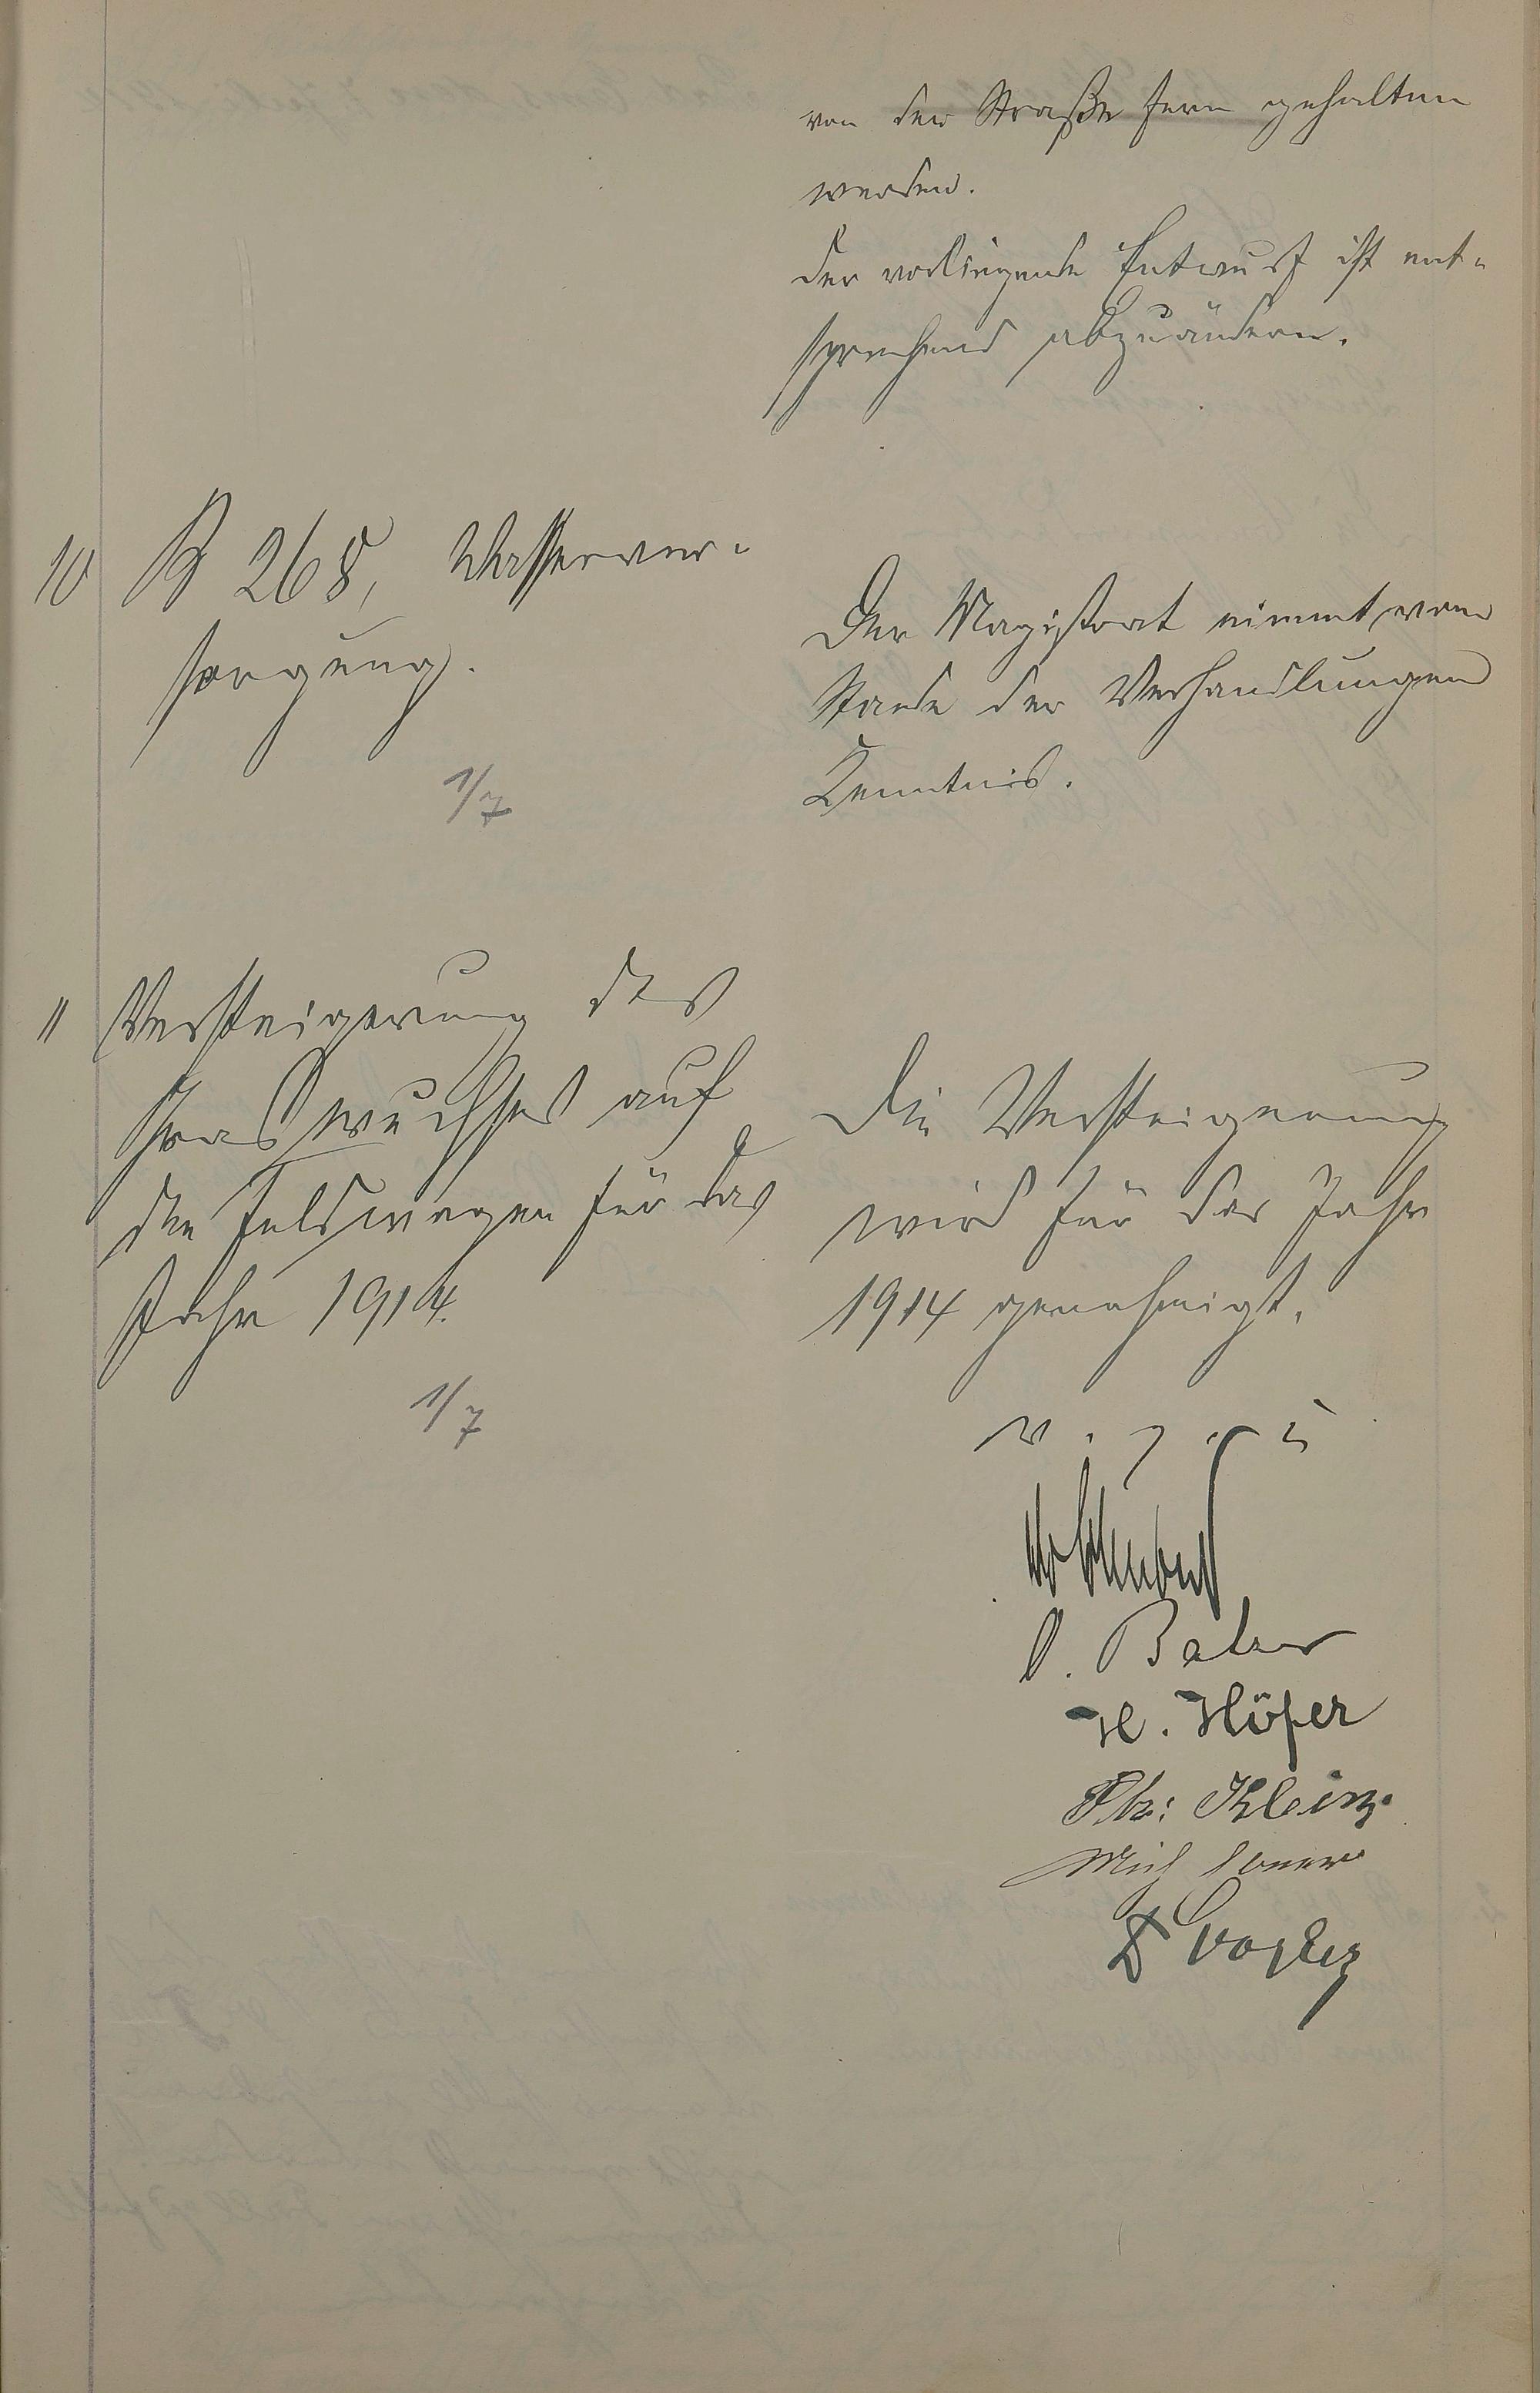 von der Straße fern gehalten
werden.
Der vorliegende Entwurf ist ent-
sprechend abzuändern.
10 § 268, Wasserver-
sorgung.
1/7
Der Magistrat nimmt vom
Stande der Verhandlungen
Kenntnis.
11 Versteigerung des
Graswuchses auf
den Feldwegen für das
Jahr 1914.
1/7
Die Versteigerung
wird für das Jahr
1914 genehmigt.
v. g. u.
Balzer
H. Höfer
Ph: Klein